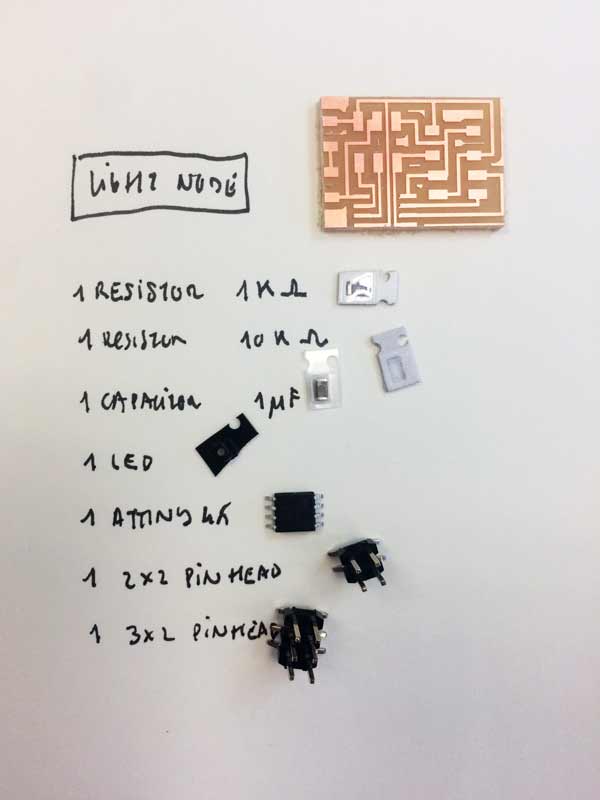 LIGHT NODE
1 RESISTOR 1K Ω
1 RESISTOR 10K Ω
1 CAPACITOR 1 μF
1 LED
1 ATTINY 45
1 2x2 PINHEAD
1 3x2 PINHEAD